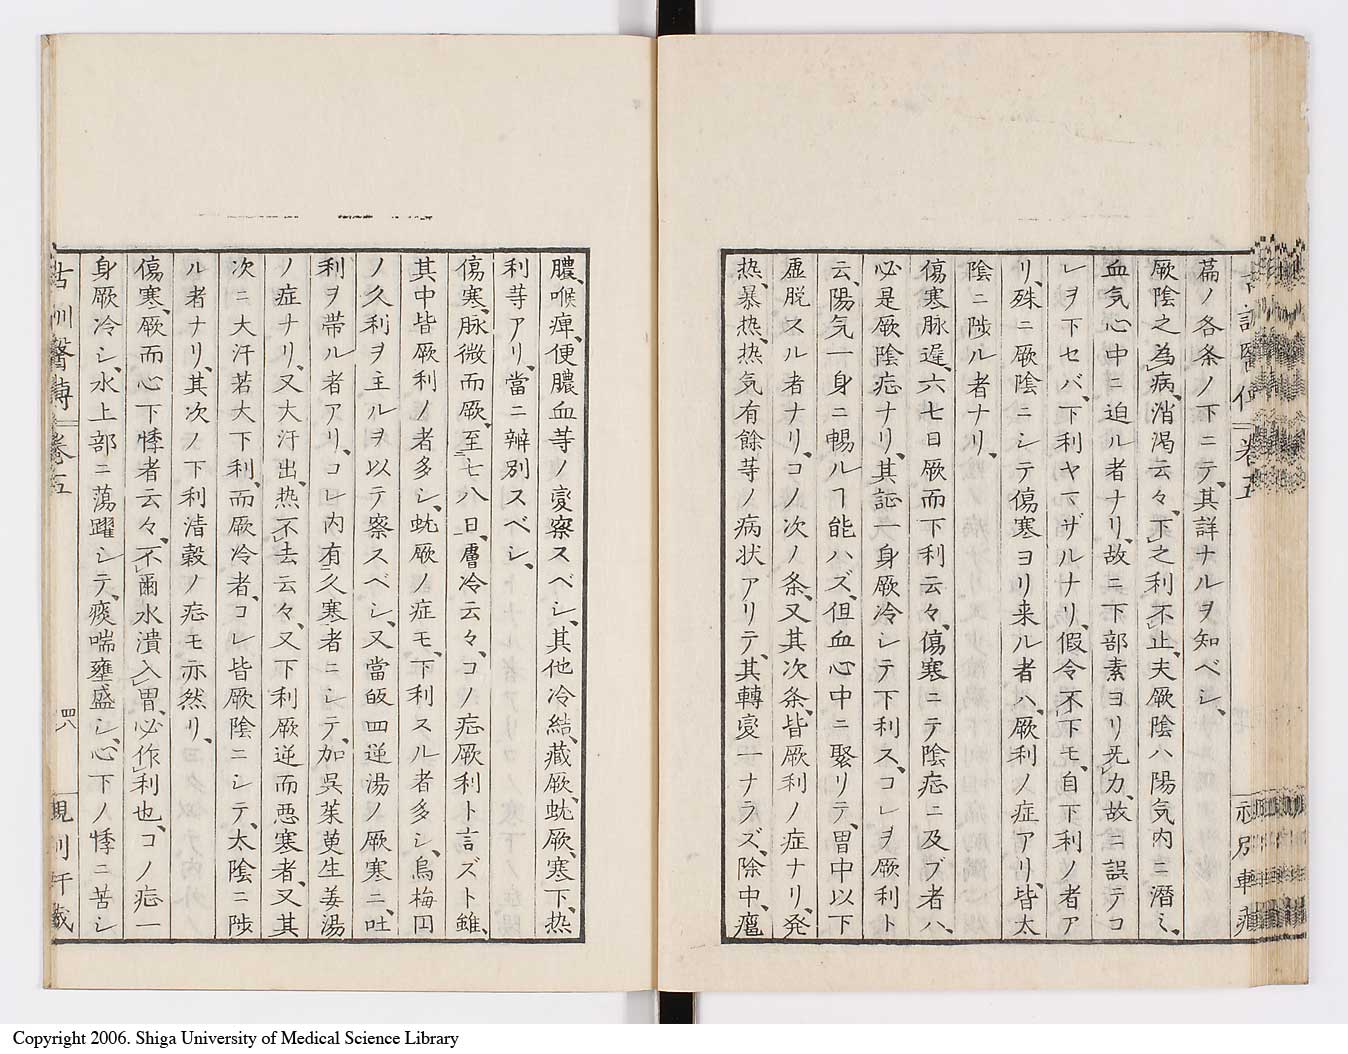 篇ノ各条ノ下ニテ、其詳ナルヲ知ベシ、
厥陰之為病、消渇云々、下之利不止、夫厥陰ハ陽気内ニ潜ミ、
血気心中ニ迫ル者ナリ、故ニ下部素ヨリ无力、故ニ誤テコ
レヲ下セバ、下利ヤマザルナリ、假令不下モ、自下利ノ者ア
リ、殊ニ厥陰ニシテ傷寒ヨリ来ル者ハ、厥利ノ症アリ、皆太
陰ニ陟ル者ナリ、
傷寒脉遅、六七日厥而下利云々、傷寒ニテ陰症ニ及ブ者ハ、
必是厥陰症ナリ、其証一身厥冷シテ下利ス、コレヲ厥利ト
云、陽気一身ニ暢ルヿ能ハズ、但血心中ニ緊リテ、胃中以下
虚脱スル者ナリ、コノ次ノ条、又其次条、皆厥利ノ症ナリ、発
热、暴热、热気有餘等ノ病状アリテ、其轉変一ナラズ、除中、癰
膿、喉痺、便膿血等ノ変察スベシ、其他冷結、蔵厥、蚘厥、寒下、热
利等アリ、當ニ辨別スベシ、
傷寒、脉微而厥、至七八日、膚冷云々、コノ症厥利ト言ズト雖、
其中皆厥利ノ者多シ、蚘厥ノ症モ、下利スル者多シ、烏梅円
ノ久利ヲ主ルヲ以テ察スベシ、又當皈四逆湯ノ厥寒ニ、吐
利ヲ帯ル者アリ、コレ内有久寒者ニシテ、加呉茱萸生姜湯
ノ症ナリ、又大汗出、热不去云々、又下利厥逆而悪寒者、又其
次ニ大汗若大下利、而厥冷者、コレ皆厥陰ニシテ、太陰ニ陟
ル者ナリ、其次ノ下利清穀ノ症モ亦然リ、
傷寒、厥而心下悸者云々、不爾水漬入胃、必作利也、コノ症一
身厥冷シ、水上部ニ蕩躍シテ、痰喘壅盛シ、心下ノ悸ニ苦シ
古訓醫傳 卷五
四八